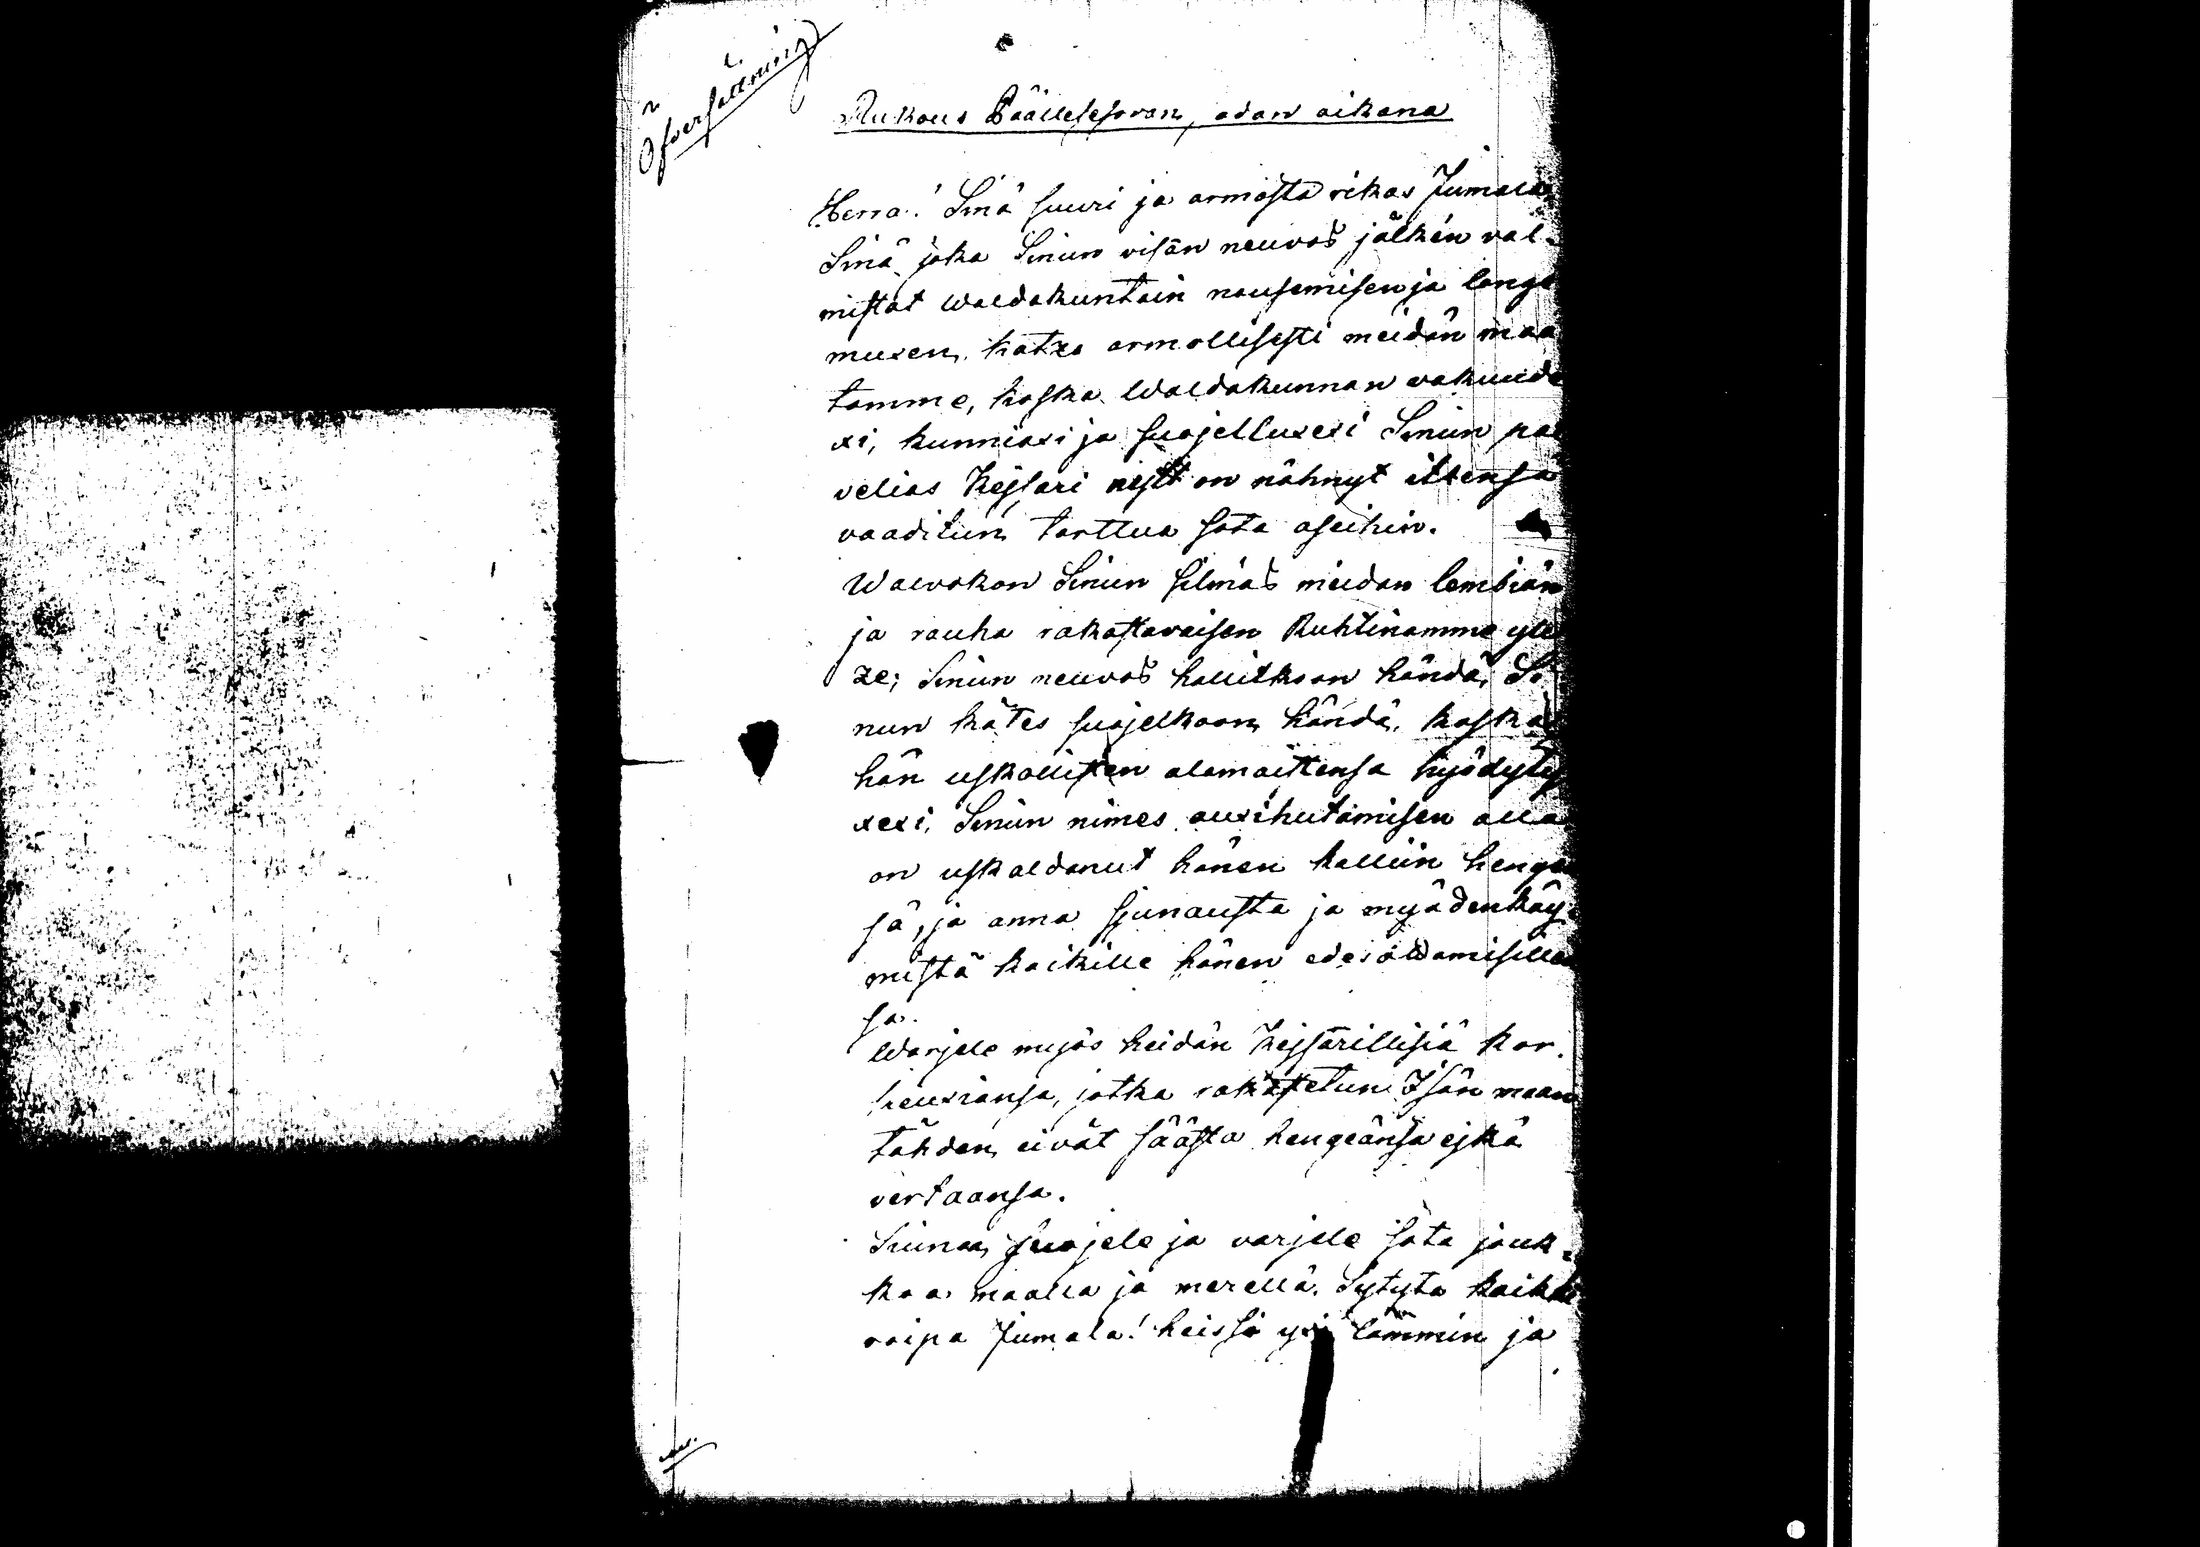 Öfversättning
Rukous Päällesesovan, odan aikana
Herra! Sinä suuri ja armosta rikas Jumala
Sinä joka Sinun visän neuvos jälken val-
mistat Waldakuntain nousemisen ja lange
muxen, katzo armollisesti meidän maa
tamme, koska Waldakunnan vakuude
xi, kunniaxi ja suojelluxexi Sinun pal
velias Kejsari nyt on nähnyt ittensä
vaaditun tarttua sota aseihin.
Walvokon Sinun silmäs meidän lembiän
ja rauha rakastavaisen Ruhtinamme yli
ze; Sinun neuvos hallitkoon händä, Si
nun kätes suojelkoon händä, koska
hän uskollisten alamaistensa hyödyty
xexi, Sinun nimes auxihutamisen alla
on uskaldanut hänen kalliin henge
sä, ja anna siunausta ja myödenkäy-
mistä kaikille hänen edesottamisille
sa.
Warjele myös heidän Kejsarillisiä kor-
keuxiansa, jotka rakastetun Isän maan
tähden eivät säästä hengeänsä ejkä
vertaansa.
Siunaa, suojele ja varjele sota jouk-
koa maalla ja merellä. Sytytä kaikki
voipa Jumala! heissä yxi lämmin ja